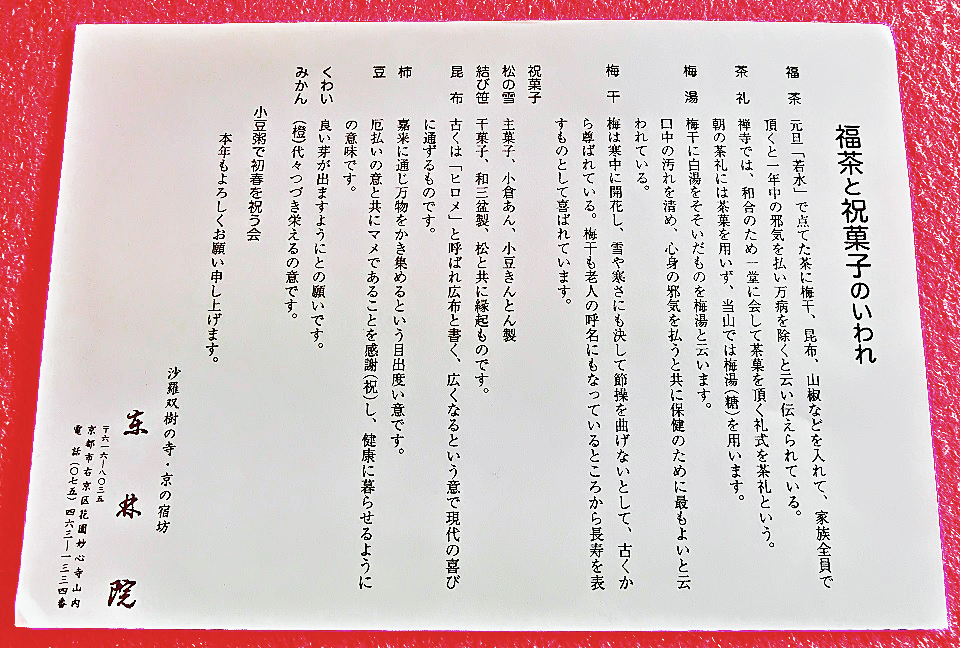 福茶と祝菓子のいわれ
福茶 元旦「若水」で点てた茶に梅干、昆布、山椒などを入れて、家族全員で
頂くと一年中の邪気を払い万病を除くと云い伝えられている。
茶礼 禅寺では、和合のため一堂に会して茶菓を頂く礼式を茶礼という。
朝の茶礼には茶菓を用いず、当山では梅湯(糖)を用います。
梅湯 梅干に白湯をそそいだものを梅湯と云います。
口中の汚れを清め、心身の邪気を払うと共に保健のために最もよいと云
われている。
梅干 梅は寒中に開花し、雪や寒さにも決して節操を曲げないとして、古くか
ら尊ばれている。梅干も老人の呼名にもなっているところから長寿を表
すものとして喜ばれています。
祝菓子
松の雪 主菓子、小倉あん、小豆きんとん製
結び笹 干菓子、和三盆製、松と共に縁起ものです。
昆布 古くは「ヒロメ」と呼ばれ広布と書く、広くなるという意で現代の喜び
に通ずるものです。
柿 嘉来に通じ万物をかき集めるという目出度い意です。
豆 厄払いの意と共にマメであることを感謝(祝)し、健康に暮らせるように
の意味です。
くわい 良い芽が出ますようにとの願いです。
みかん (橙)代々つづき栄えるの意です。
小豆粥で初春を祝う会
本年もよろしくお願い申し上げます。
沙羅双樹の寺・京の宿坊
東林院
〒六一六―八〇三五
京都市右京区花園妙心寺山内
電話(〇七五)四六三―一三三四番